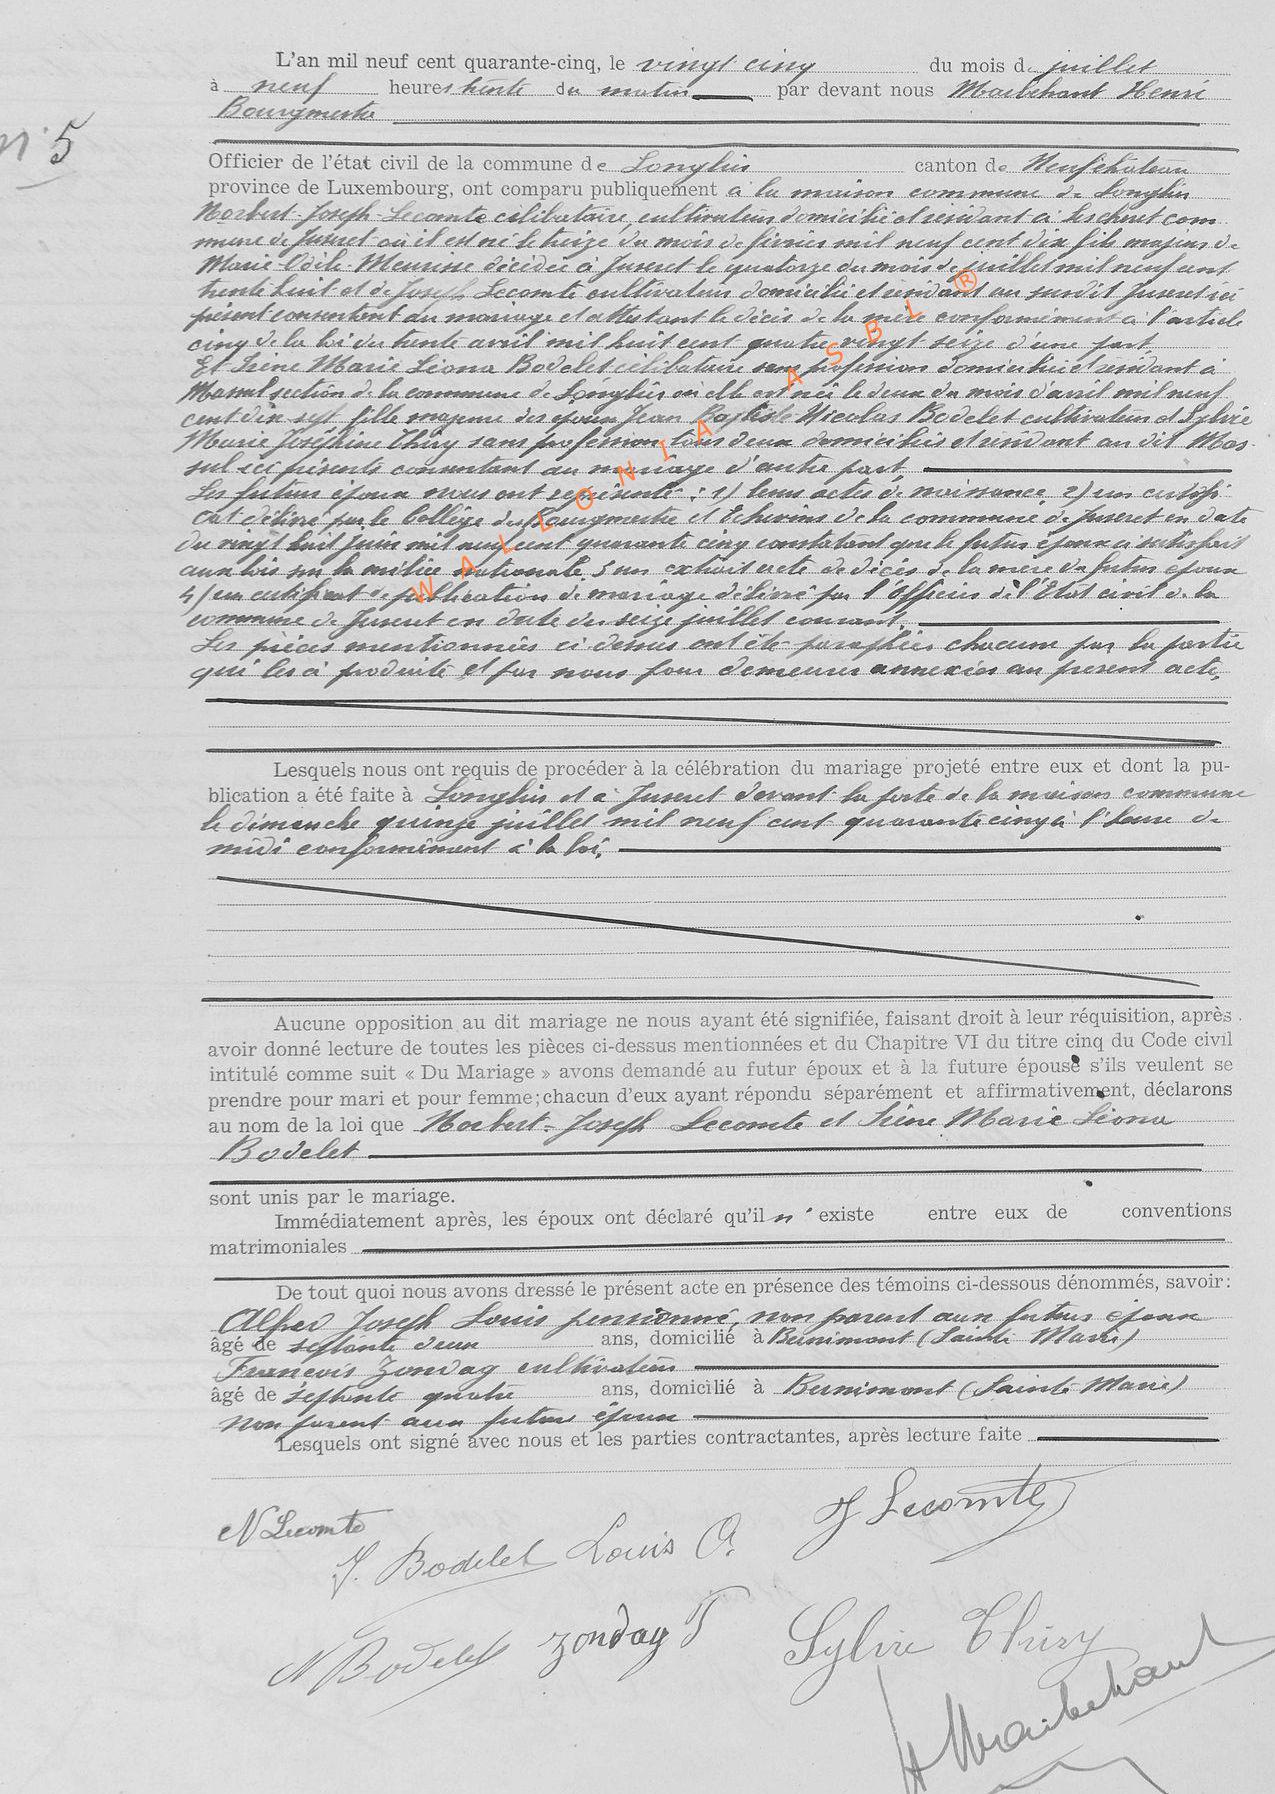 L'an mil neuf cent quarante-cinq, le vingt cinq du mois de juillet
à neuf heures trente du matin par devant nous Maréchant Henri
Bourgmestre
n° 5
Officier de l'état civil de la commune de Longlier canton de Neufchâteau
province de Luxembourg, ont comparu publiquement à la maison commune de Longlier
Norbert Joseph Lecomte célibataire, cultivateur domicilié et résidant à Lescheret com
mune de Juseret où il est né le treize du mois de février mil neuf cent dix fils majeur de
Marie Odile Meurisse décédée à Juseret le quatorze du mois de juillet mil neuf cent
trente huit et de Joseph Lecomte cultivateur domicilié et résidant au susdit Juseret ici
présent consentant au mariage et attestant le décès de la mère conformément à l'article
cinq de la loi du trente avril mil huit cent quatre vingt seize d'une part
Et Irène Marie Léona Bodelet célibataire sans profession domiciliée et résidant à
Massul section de la commune de Longlier où elle est née le deux du mois d'avril mil neuf
cent dix sept fille majeure des époux Jean Baptiste Nicolas Bodelet cultivateur et Sylvie
Marie Joséphine Thiry sans profession tous deux domiciliés et résidant au dit Mas
sul ici présents consentant au mariage d'autre part,
Les futurs époux nous ont représenté : 1) leurs actes de naissance 2) un certifi
cat délivré par le Collège des Bourgmestre et Echevins de la commune de Juseret en date
du vingt huit juin mil neuf cent quarante cinq constatant que le futur époux a satisfait
aux lois sur la milice nationale. 3 un extrait acte de décès de la mère du futur époux
4/ un certificat de publication de mariage délivré par l'Officier de l'Etat civil de la
commune de Juseret en date du seize juillet courant.
Les pièces mentionnées ci dessus ont été paraphées chacune par la partie
qui les a produite et par nous pour demeurer annexées au présent acte.
Lesquels nous ont requis de procéder à la célébration du mariage projeté entre eux et dont la pu-
blication a été faite à Longlier et à Juseret devant la porte de la maison commune
le dimanche quinze juillet mil neuf cent quarante cinq à l'heure de
midi conformément à la loi.
Aucune opposition au dit mariage ne nous ayant été signifiée, faisant droit à leur réquisition, après
avoir donné lecture de toutes les pièces ci-dessus mentionnées et du Chapitre VI du titre cinq du Code civil
intitulé comme suit « Du Mariage » avons demandé au futur époux et à la future épouse s'ils veulent se
prendre pour mari et pour femme; chacun d'eux ayant répondu séparément et affirmativement, déclarons
au nom de la loi que Norbert-Joseph Lecomte et Irène Marie Léona
Bodelet
sont unis par le mariage.
Immédiatement après, les époux ont déclaré qu'il n'existe entre eux de conventions
matrimoniales
De tout quoi nous avons dressé le présent acte en présence des témoins ci-dessous dénommés, savoir:
Alfred Joseph Louis pensionné, non parent aux futurs époux
âgé de septante deux ans, domicilié à Bernimont (Sainte Marie)
François Zondag cultivateur
âgé de septante quatre ans, domicilié à Bernimont (Sainte Marie)
non parent aux futurs époux
Lesquels ont signé avec nous et les parties contractantes, après lecture faite
N Lecomte
J Lecomte
I. Bodelet Louis A.
N Bodelet Zondag F
Sylvie Thiry
WALLONIA ASBL ®